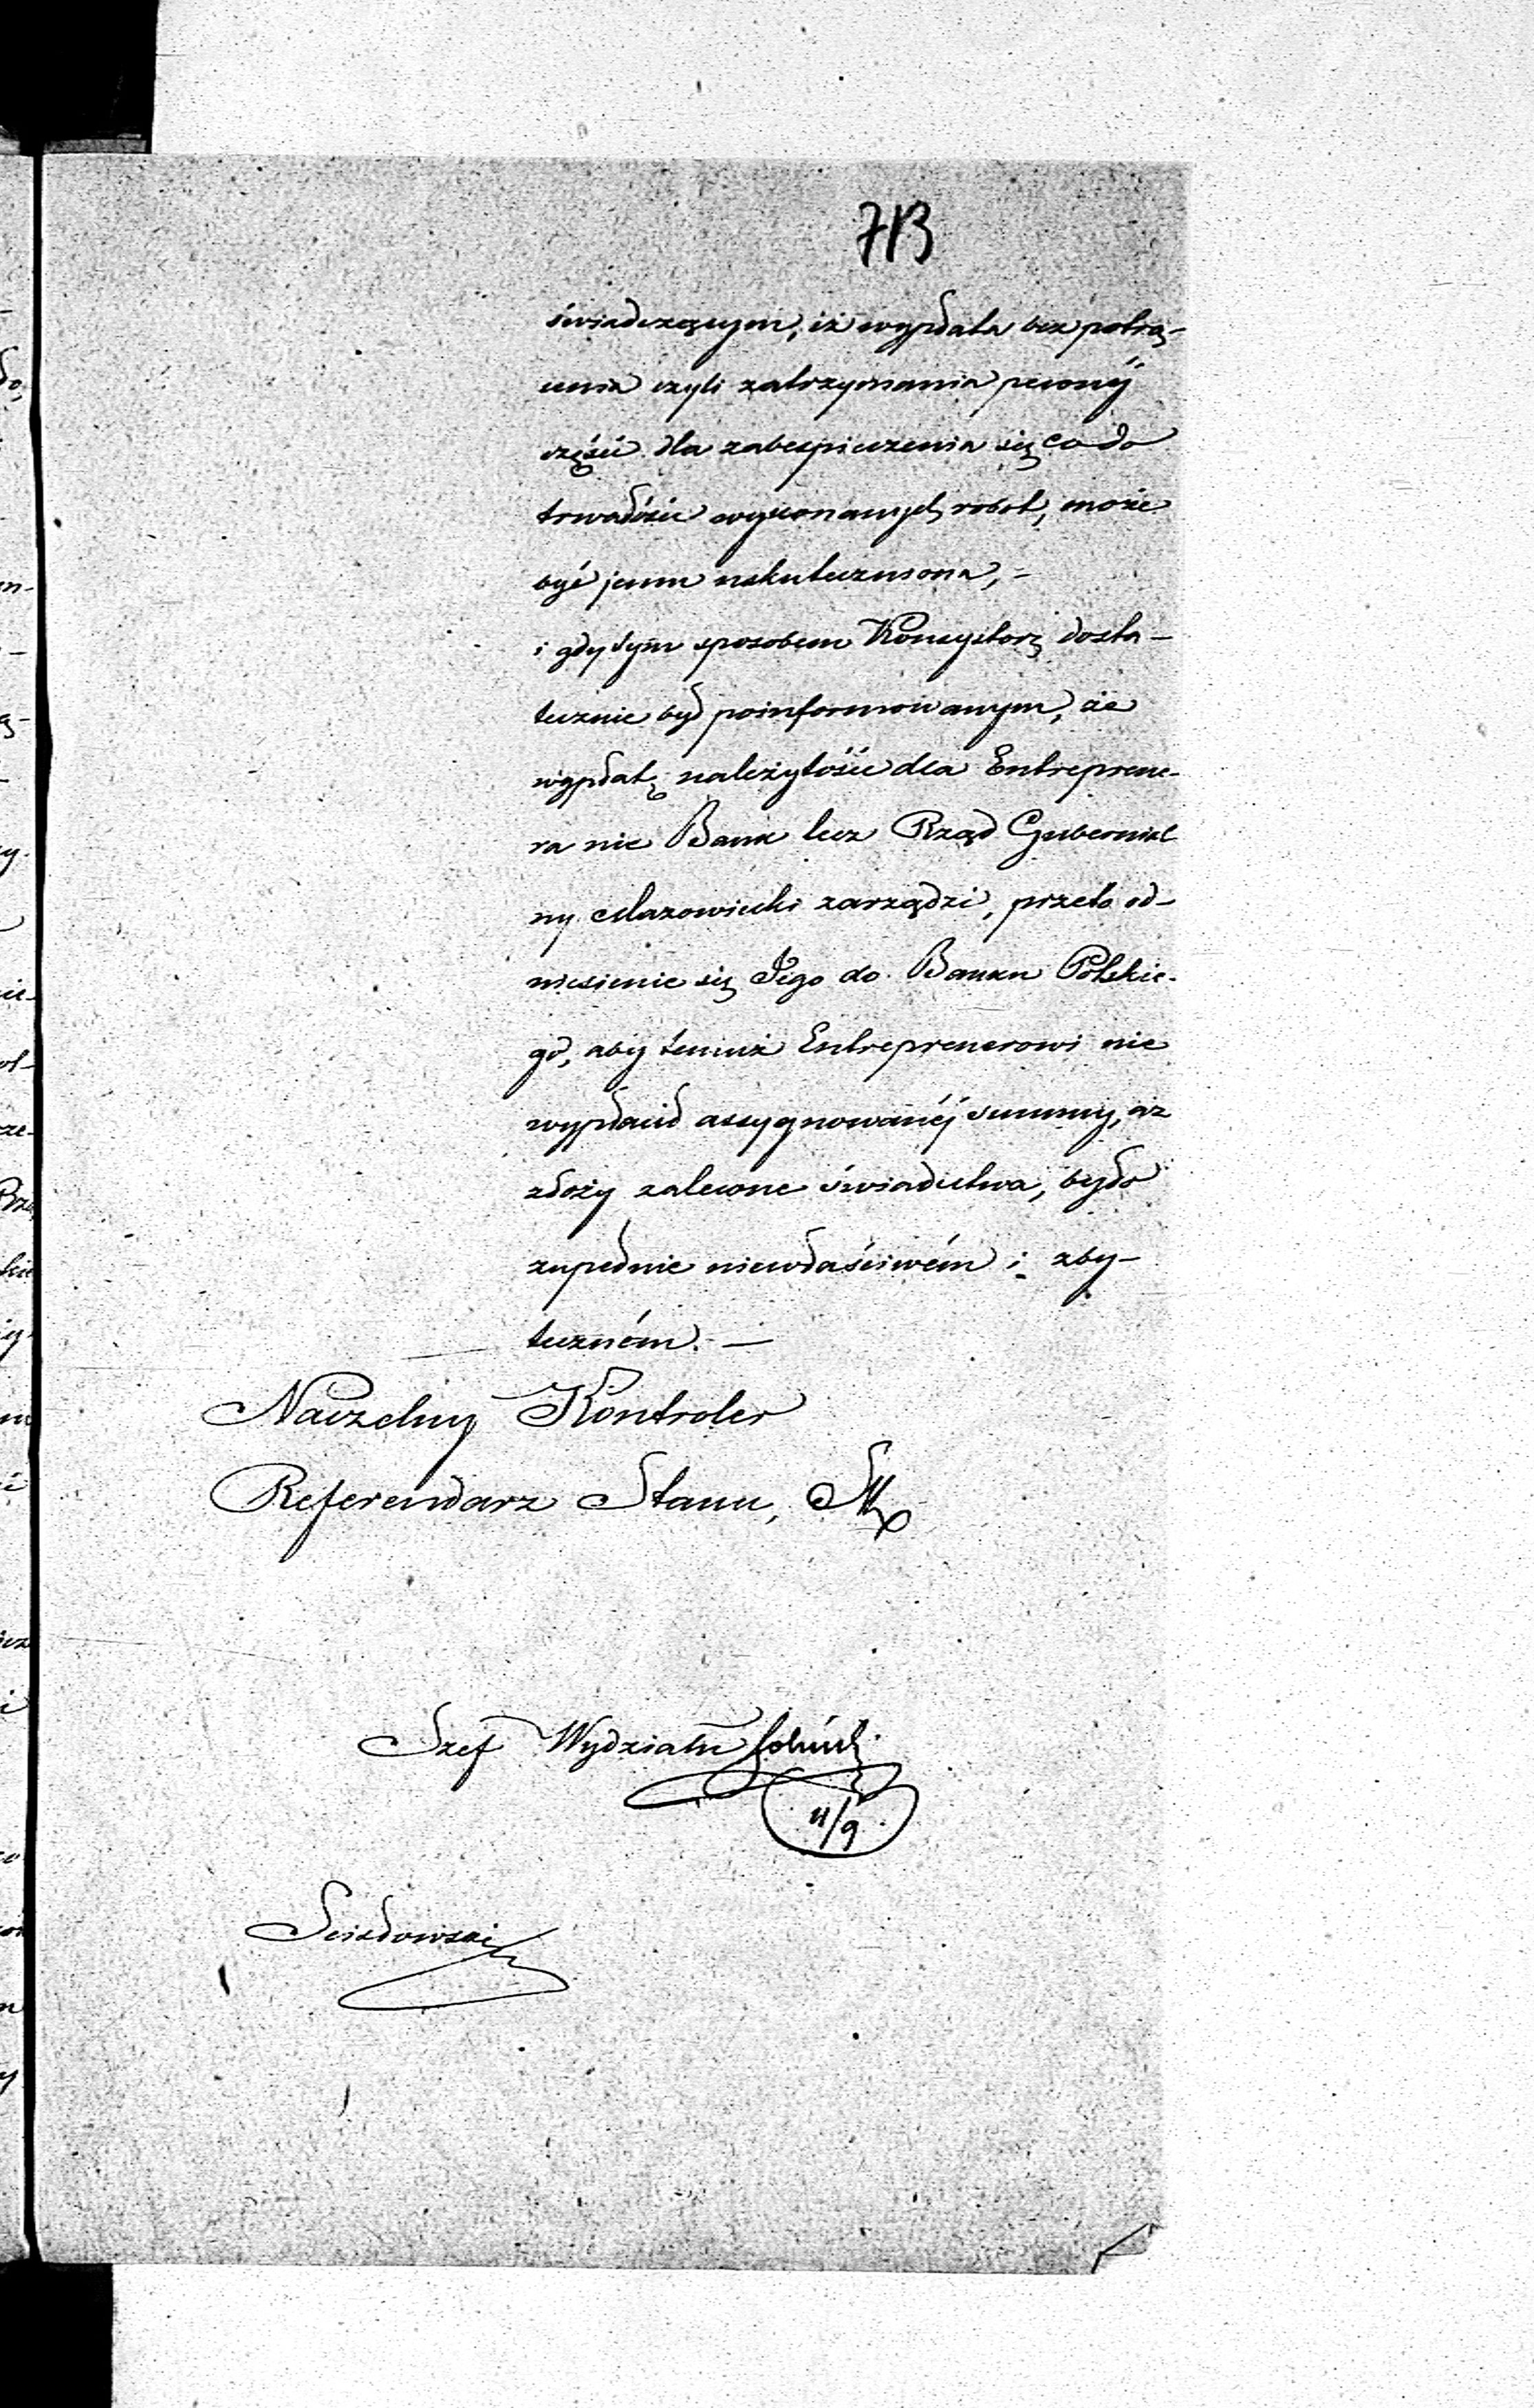 713
świadczącym, iż wypłata bez potrą-
cenia czyli zatrzymania pewnéj
części dla zabespieczenia się co do
trwałości wykonanych robot, może
być jemu uskutecznioną, =
i gdy tym sposobem Konsystorz dosta-
tecznie był poinformowanym, że
wypłatę należytości dla Entreprene-
ra nie Bank lecz Rząd Gubernial
ny Mazowiecki zarządzi, przeto od-
niesienie się Jego do Banku Polskie-
go, aby temuż Entreprenerowi nie
wypłacił assygnowanéj summy, aż
złoży zalecone świadectwa, było
zupełnie niewłaściwém i zby-
teczném. —
Naczelny Kontroler
Referendarz Stanu,
Szef Wydziału
11/9